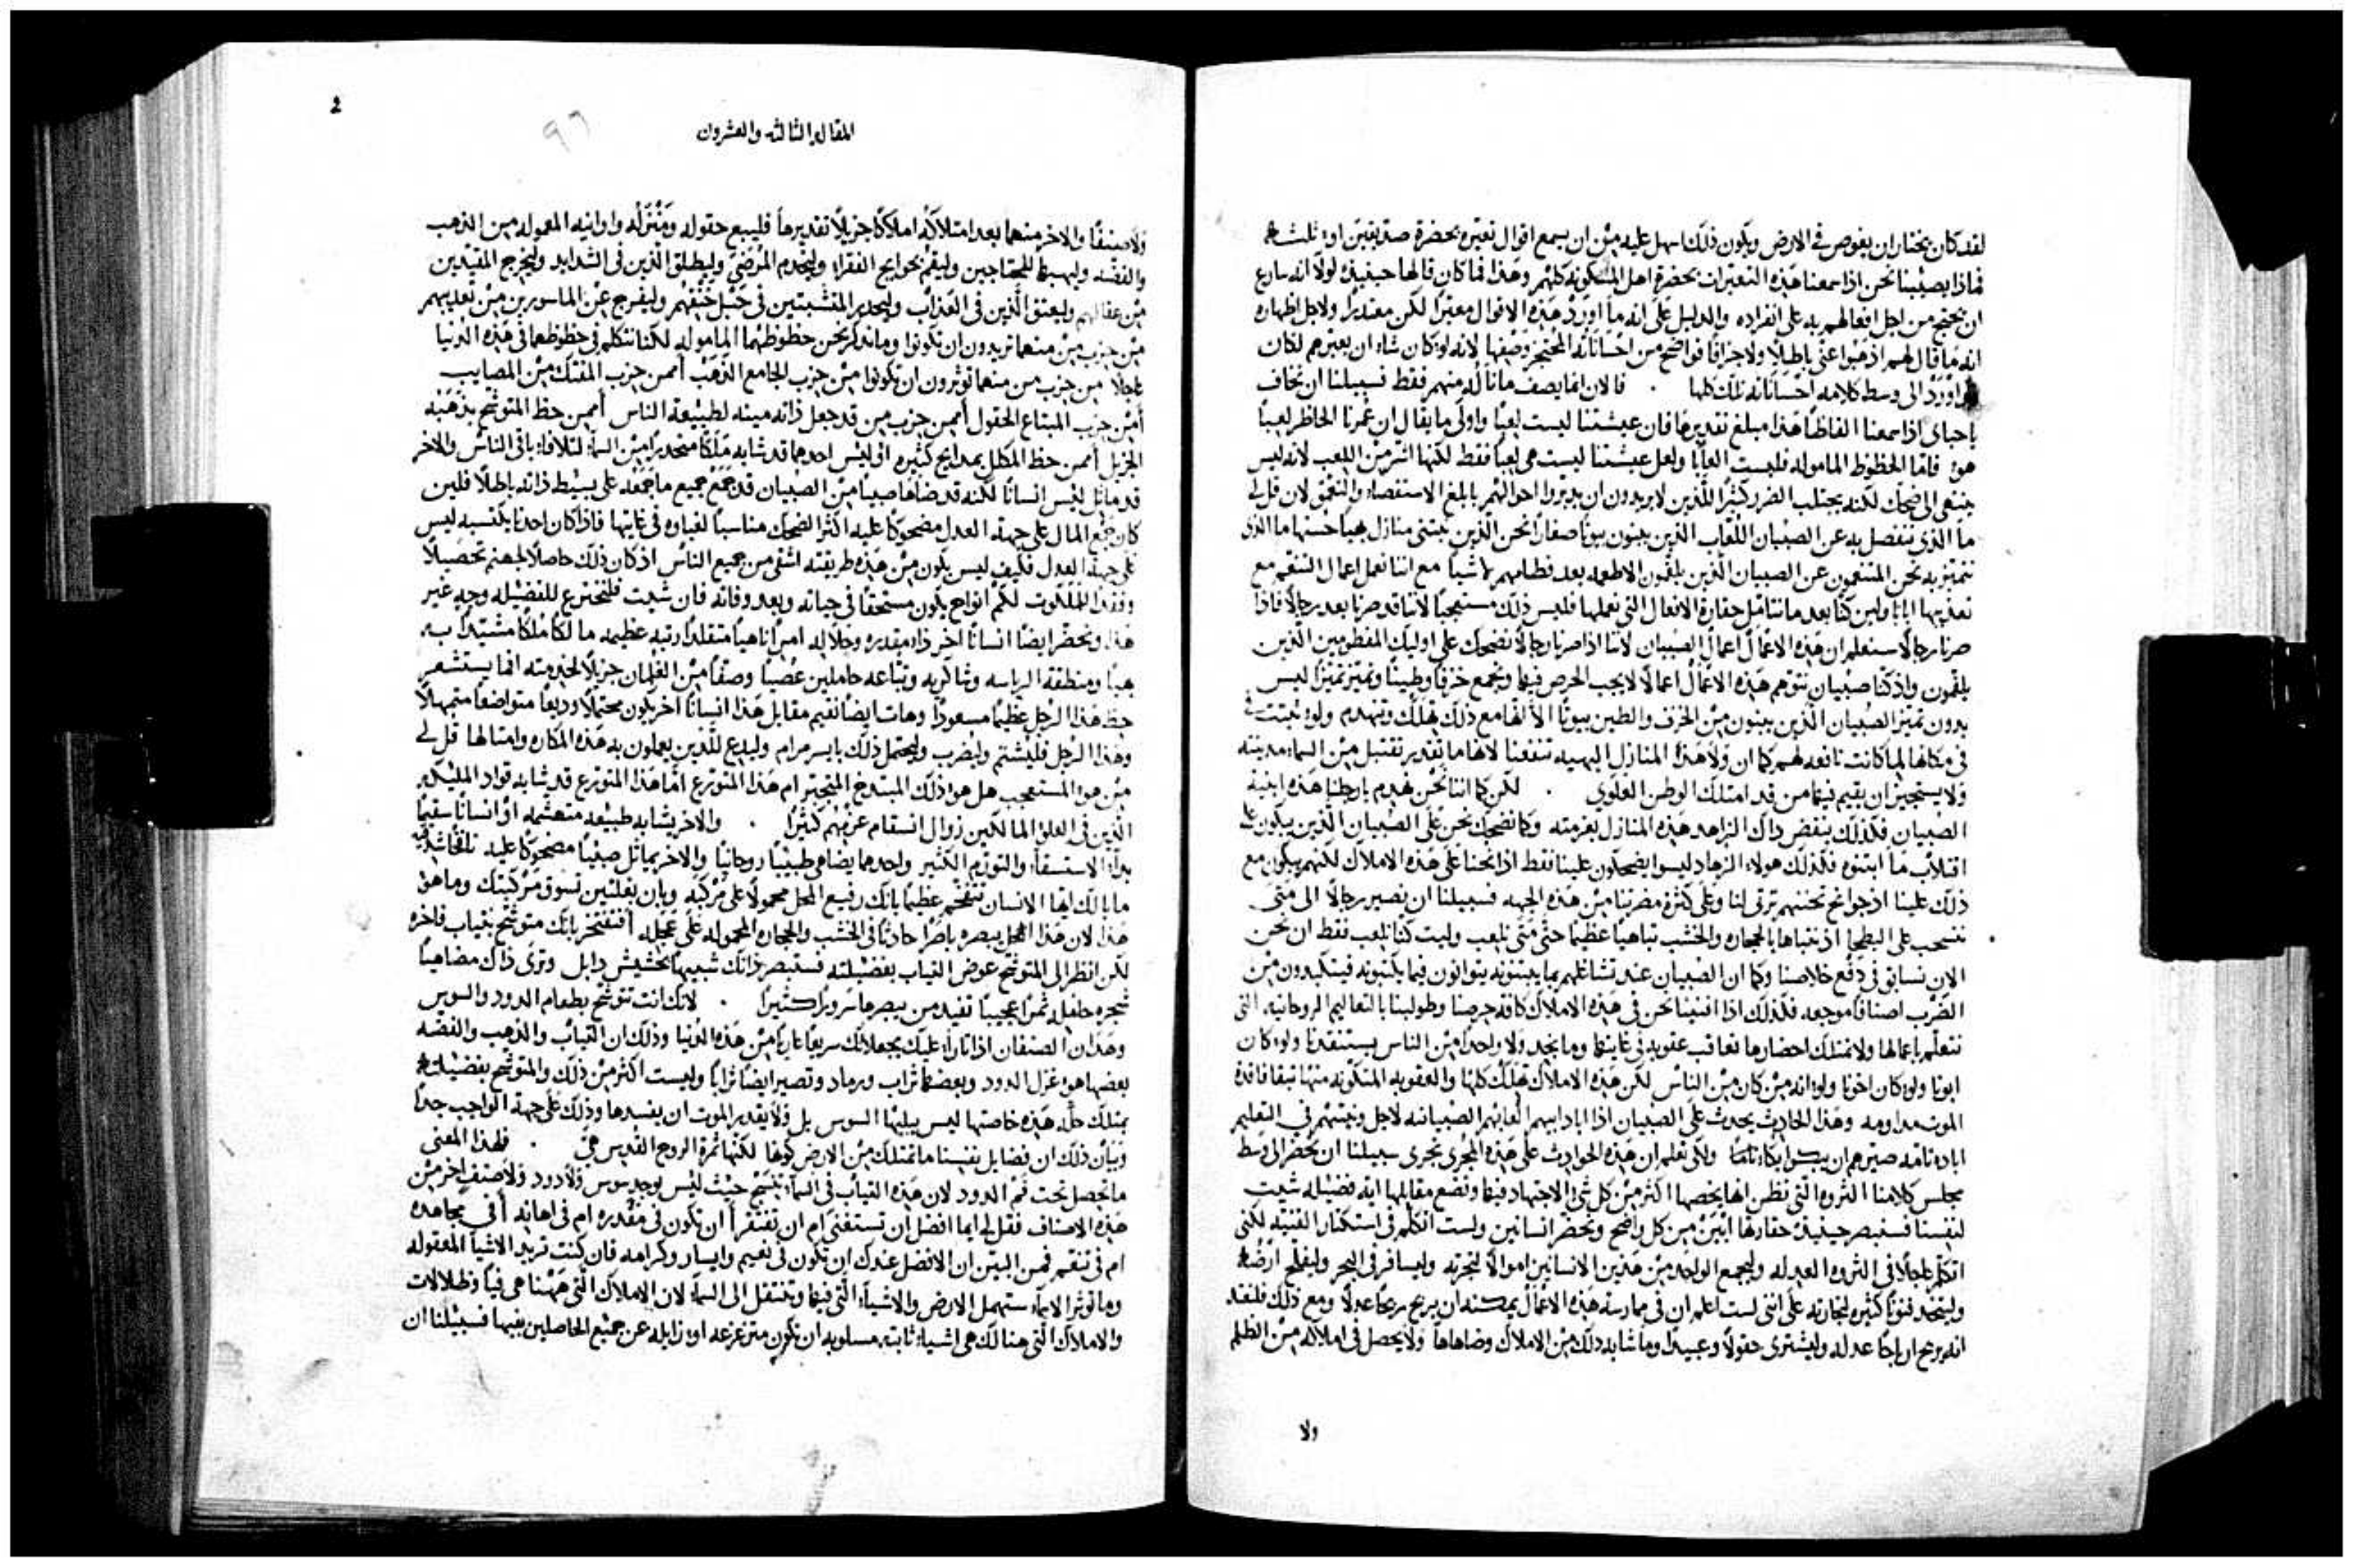 لقد كان يختار ان يغوص في الارض ويكون ذلك اسهل عليه من ان يسمع اقوال تعيره بحضرة صديقين او ثلثه
فماذا يصيبنا نحن اذا سمعنا هذه التعيرات بحضرة اهل المسكونه كلهم وهذا فما كان قالها حينيذ لولا انه سارع
ان يحتج من اجل افعالهم به على انفراده والدليل على انه ما اورد هذه الاقوال معيرا لكن معتدرا ولاجل اظهاره
انه ما قال لهم اذهبوا عني باطلا ولا جزافا فواضح من احساناته المعجز وصفها لانه لو كان شاء ان يعيرهم لكان
اورد الى وسط كلامه احساناته تلك كلها . فالان انما يصف ما ناله منهم فقط فسبيلنا ان نخاف
يا احباي اذا سمعنا الفاظا هذا مبلغ تقديرها فان عيشتنا ليست لعبا واولى ما يقال ان عمرنا الحاظر لعبا
هو فاما الحظوظ الماموله فليست العابا ولعل عيشتنا ليست هي لعبا فقط لكنها اشر من اللعب لانه ليس
ينتهي الى ضحك لكنه يجتلب الضرر كثيرا للذين لا يريدون ان يدبروا احوالهم بابلغ الاستقصاء والتحقق لان قل لي
ما الذي ننفصل به عن الصبيان اللعاب الذين يبنون بيوتا صغارا نحن الذين نبتني منازل بهيا حسنها ما الذي
نتميز به نحن المتنعمون عن الصبيان الذين يلقون الاطعمه بعد فطامهم لا شيا مع اننا نعمل اعمال التنعم مع
تعذيبها ايانا ولين كنا بعد ما نتامل حقارة الافعال التي نعملها فليس ذلك مستعجبا لاننا قد صرنا بعد رجالا فاذا
صرنا رجالا سنعلم ان هذه الاعمال اعمال الصبيان لاننا اذا صرنا رجالا نضحك على اوليك المفطومين الذين
يلقون واذ كنا صبيان نتوهم هذه الاعمال اعمالا لا يجب الحرص فيها ونجمع خزفا وطينا ونتميز تميزا ليس
بدون تميز الصبيان الذين يبنون من الخزف والطين بيوتا الا انها مع ذلك تهلك وتنهدم ولو ثبتت
في مكانها لما كانت نافعه لهم كما ان ولا هذه المنازل البهيه تنفعنا لانها ما تقدر تقتبل من السماء مدينته
ولا يستجيز ان يقيم فيها من قد امتلك الوطن العلوي . لكن كما اننا نحن نهدم بارجلنا هذه ابنية
الصبيان فكذلك ينقض ذاك الزاهد هذه المنازل بعزمته وكما نضحك نحن على الصبيان الذين يبكون على
اقتلاب ما ابتنوه فكذلك هولاء الزهاد ليسوا يضحكون علينا فقط اذا نحنا على هذه الاملاك لكنهم يبكون مع
ذلك علينا اذ جوانح تحننهم ترثى لنا وعلى كثرة مضرتنا من هذه الجهه فسبيلنا ان نصير رجالا الى متى
ننسحب على البطحا اذ نتباها بالحجاره والخشب تباهيا عظيما حتى متى نلعب وليت كنا نلعب فقط ان نحن
الان نسابق في دفع خلاصنا وكما ان الصبيان عند تشاغلهم بما يبنونه يتوانون فيما يكتبونه فيتكبدون من
الضرب اصنافا موجعه فكذلك اذا افنينا نحن في هذه الاملاك كافة حرصنا وطولبنا بالتعاليم الروحانيه التي
نتعلم باعمالها ولا نمتلك احضارها نعاقب عقوبه في غايتها وما يجد ولا واحدا من الناس يستنقذنا ولو كان
ابونا ولو كان اخونا ولو انه من كان من الناس لكن هذه الاملاك تهلك كلها والعقوبه المتكونه منها تبقا فاقدة
الموت مداومه وهذا الحادث يحدث على الصبيان اذا اباد ابيهم العابهم الصبيانيه لاجل ونيتهم في التعليم
اباده تامه صيرهم ان يبكوا بكاء تاما ولكي نعلم ان هذه الحوادث على هذه المجرى تجري سبيلنا ان نحضر الى وسط
مجلس كلامنا الثروه التي نظن انها يخصها اكثر من كل شي الاجتهاد فيها ونضع مقابلها اية فضيله شيت
لنفسنا فستبصر حينيذ حقارتها ابين من كل واضح ونحضر انسانين ولست اتكلم في استكثار القنيه لكني
اتكلم عاجلا في الثروه العدله وليجمع الواحد من هذين الانسانين اموالا لتجرته وليسافر في البحر وليفلح ارضه
وليتخذ فنونا كثيره لتجارته على انني لست اعلم ان في ممارسة هذه الاعمال يمكنه ان يربح ربحا عدلا ومع ذلك فلنعد
انه يربح ارباحا عدله وليشتري حقولا وعبيدا وما شابه ذلك من الاملاك وضاهاها ولا يحصل في املاكه من الظلم
ولا
2
المقاله الثالثه والعشرون
٩٦
ولا صنفا والاخر منهما بعد امتلاكه املاكا جزيلا تقديرها فليبيع حقوله ومنزله واوانيه المعموله من الذهب
والفضه وليهبها للمحتاجين وليقم بحوايج الفقراء وليخدم المرضى وليطلق الذين في الشدايد وليخرج المقيدين
من عقالهم وليعتق الذين في العذاب وليحدر المنتشبتين في حبل خنقهم وليفرج عن الماسورين من تعذيبهم
من حزب من منهما تريدون ان تكونوا وما نذكر نحن حظوظهما الماموله لكننا نتكلم في حظوظهما في هذه الدنيا
عاجلا من حزب من منهما توثرون ان تكونوا من حزب الجامع الذهب اممن حزب المفتك من المصايب
أمن حزب المبتاع الحقول أممن حزب من قد جعل ذاته مينه لطبيعة الناس أممن حظ المتوشح بذهبه
الجزيل أممن حظ المكلل بمدايح كثيره افليس احدهما قد شابه ملكا منحدرا من السماء لتلافاء باقي الناس والاخر
قد ماثل ليس انسانا لكنه قد ضاها صبيا من الصبيان قد جمع جميع ما جمعه على بسيط ذاته باطلا فلين
كان جمع المال على جهة العدل مضحوكا عليه اكثر الضحك مناسبا لغباوه في غايتها فاذا كان احدنا يكتسبه ليس
على جهة العدل فكيف ليس يكون من هذه طريقته اشقى من جميع الناس اذ كان ذلك حاصلا لجهنم تحصيلا
وفقد الملكوت لكم انواح يكون مستحقا في حياته وبعد وفاته فان شيت فلنخترع للفضيله وجه غير
هذا ونحضر ايضا انسانا اخر ذا مقدره وجلاله امرا ناهيا متقلدا رتبه عظيمه مالكا ملكا مشتدا به
بهيا ومنطقة الرياسه وشاكريه وتباعه حاملين عصيا وصفا من الغلمان جزيلا لخدمته افما يستشعر
حظ هذا الرجل عظيما مسعودا وهات ايضا نقيم مقابل هذا انسانا اخر يكون محتملا وديعا متواضعا متمهلا
وهذا الرجل فليشتم وليضرب وليحتمل ذلك بايسر مرام وليدع للذين يعملون به هذه المكاره وامثالها قل لي
من هو المستعجب هل هو ذلك المبتذخ المتجبر ام هذا المتورع اما هذا المتورع قد شابه قواد المليكه
الذين في العلو المالكين زوال انسقام عزمهم كثيرا . والاخر يشابه طبيعه متهشمه او انسانا سقيما
بداء الاستسقاء والتورم الكثير واحدهما يضاهي طبيبا روحانيا والاخر يماثل صبيا مضحوكا عليه
ما بالك ايها الانسان تتفخم عظيما بانك رفيع المحل محمولا على مركبه وبان بغلتين تسوق مركبتك وما هو
هذا لان هذا المحل يبصره باصرا حادثا في الخشب والحجاره المحموله على عجله أفتفتخر بانك متوشح بثياب فاخره
لكن انظر الى المتوشح عوض الثياب بفضيلته فستبصر ذاتك شبيها بحشيش دابل وترى ذاك مضاهيا
شجره حامله ثمرا عجيبا تفيد من يبصرها سرورا كثيرا . لانك انت تتوشح بطعام الدود والسوس
وهذان الصنفان اذا ثارا عليك يجعلانك سريعا عاريا من هذه الدنيا وذلك ان الثياب والذهب والفضه
بعضها هو غزل الدود وبعضها تراب ورماد وتصير ايضا ترابا وليست اكثر من ذلك والمتوشح بفضيلته
يمتلك حله هذه خاصتها ليس يبليها السوس بل ولا يقدر الموت ان يفسدها وذلك على جهة الواجب جدا
وبيان ذلك ان فضايل نفسنا ما تمتلك من الارض كونها لكنها ثمرة الروح القدس هي . فلهذا المعنى
ما تحصل تحت فم الدود لان هذه الثياب في السماء تنسج حيث ليس يوجد سوس ولا دود ولا صنف اخر من
هذه الاصناف فقل لي ايما افضل ان تستغني ام ان تفتقر أ ان تكون في مقدره ام في اهانه أ في مجاهده
ام في تنعم فمن البين ان الافضل عندك ان تكون في نعيم وايسار وكرامه فان كنت تريد الاشيا المعقوله
وما توثر الاسماء ستهمل الارض والاشياء التي فيها وتنتقل الى السماء لان الاملاك التي ههنا هي فيا وظلالات
والاملاك التي هنالك هي اشياء ثابته مسلوبه ان تكون متزعزعه او زايله عن جميع الحاصلين فيها فسبيلنا ان